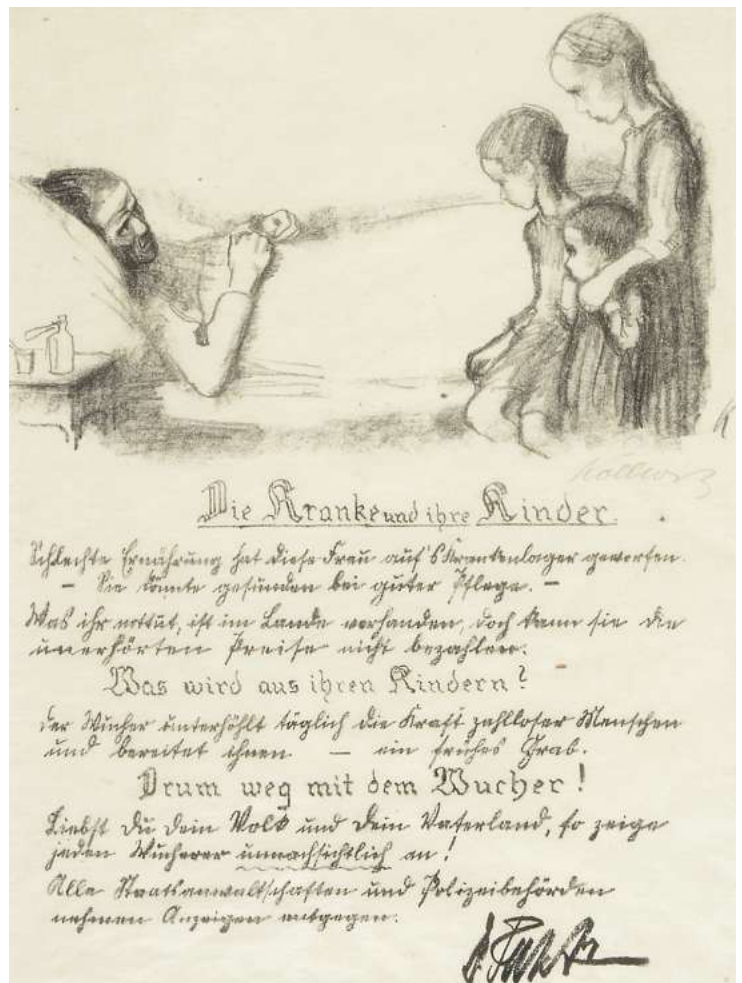 Kollwitz
Die Kranke und ihre Kinder.
Schlechte Ernährung hat diese Frau auf's Krankenlager geworfen.
– Sie könnte gesunden bei guter Pflege. –
Was ihr nottut, ist im Lande vorhanden, doch kann sie die
unerhörten Preise nicht bezahlen.
Was wird aus ihren Kindern?
Der Wucher unterhöhlt täglich die Kraft zahlloser Menschen
und bereitet ihnen – ein frühes Grab.
Drum weg mit dem Wucher!
Liebst Du Dein Volk und Dein Vaterland, so zeige
jeden Wucherer unnachsichtlich an!
Alle Staatsanwaltschaften und Polizeibehörden
nehmen Anzeigen entgegen.